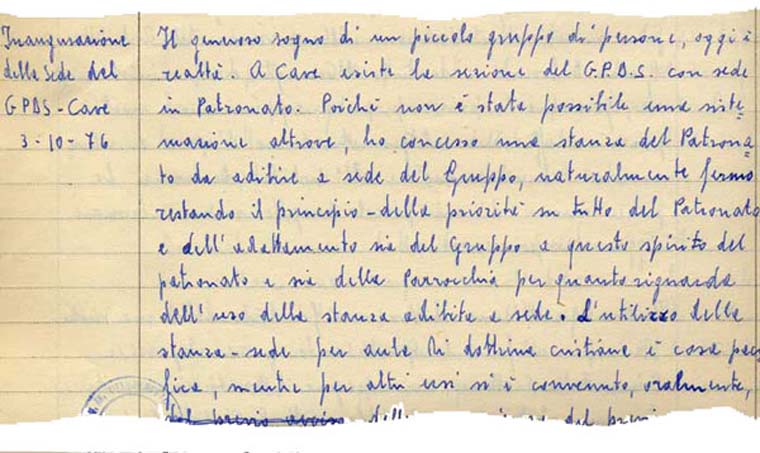 Inaugurazione
della Sede del
GPDS - Cave
3-10-76
Il generoso sogno di un piccolo gruppo di persone, oggi è
realtà. A Cave esiste la sezione del G.P.D.S. con sede
in Patronato. Poiché non è stata possibile una siste
mazione altrove, ho concesso una stanza del Patrona
to da adibire a sede del Gruppo, naturalmente fermo
restando il principio - della priorità su tutto del Patronato
e dell'adattamento sia del Gruppo a questo spirito del
patronato e sia della Parrocchia per quanto riguarda
dell'uso della stanza adibita a sede. L'utilizzo della
stanza-sede per aula di dottrina cristiana è cosa paci
fica, mentre per altri usi si è convenuto, oralmente,
del previo avviso